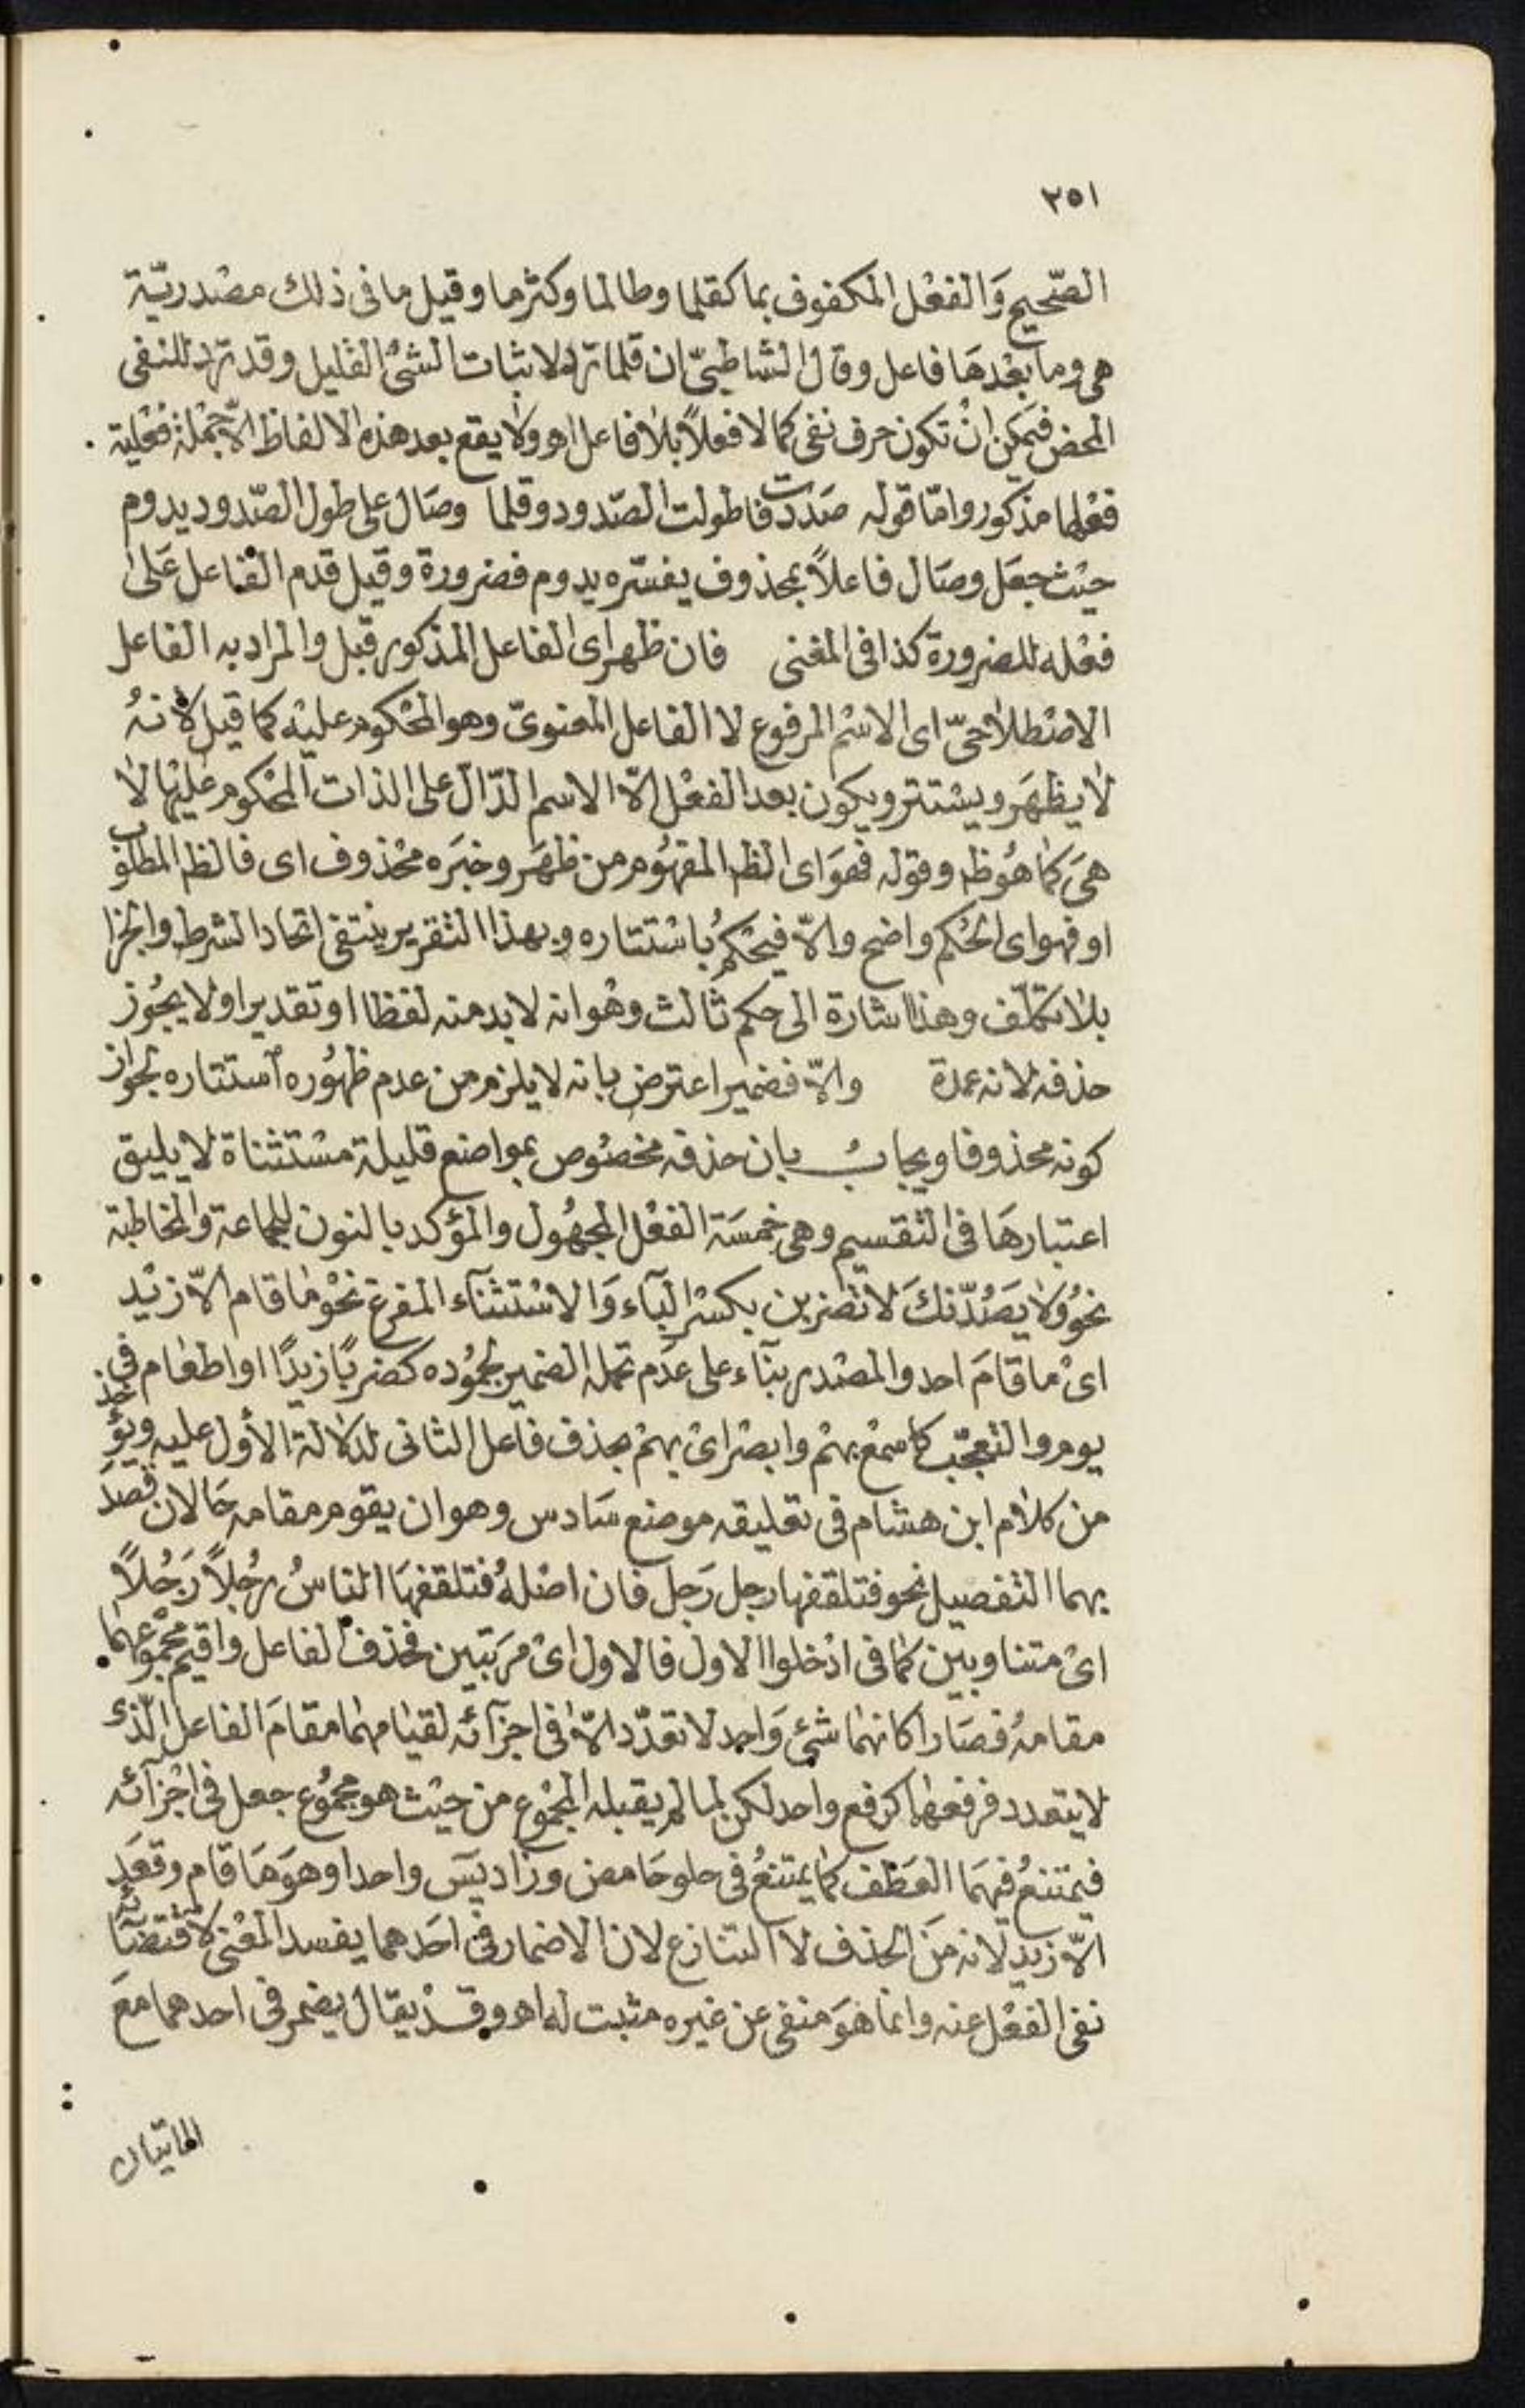 ٢٥١
الصّحيح وَالفعْل المكفوف بما كقلما وطالما وكثرما وقيل ما فى ذلك مصْدريّة
هى وما بعْدهَا فاعل وقال الشاطبىّ ان قلما ترد لاثبات الشئ القليل وقد ترد للنفى
المحض فيمكن انْ تكون حرف نفى كما لا فعلاً بلا فاعل اهـ ولا يقع بعد هذه الالفاظ الاّ جمْلة فعْلية
فعْلها مذكور وامّا قوله صَدَدْت فاطولت الصّدود وقلما وصَال على طول الصّدود يدوم
حيْث جعَل وصَال فاعلاً بمحذوف يفسّره يدوم فضرورة وقيل قدم الفاعل عَلىٰ
فعْله للضرورة كذا فى المغنى فان ظهر اى الفاعل المذكور قبل والمراد به الفاعل
الاصْطلاحىّ اى الاسْم المرفوع لا الفاعل المعنوىّ وهو المحْكوم عليْه كما قيل لأنهُ
لا يظهَر ويسْتتر ويكون بعد الفعْل الاّ الاسم الدّال على الذات المحْكوم عليْها لا
هىَ كما هُو ظه وقوله فهوَ اى الظه المفهُوم من ظهَر وخبَره محْذوف اى فالظه المطلوب
او فهو اى الحُكم واضح والاّ فيحْكمُ باسْتتاره وبهذا التقرير ينتفى اتحاد الشرط والجزا
بلا تكلّف وهذا اشارة الى حكم ثالث وهُو انه لا بد منه لفظا او تقديرا ولا يجُوز
حذفه لانه عمدة والاّ فضمير اعترض بانه لا يلزم من عدم ظهُوره استتاره لجواز
كونه محذوفا ويجابُ بان حذفه مخصُوص بمواضع قليلة مسْتثناة لا يليق
اعتبارهَا فى التقسيم وهى خمسَة الفعْل المجهُول والمؤكد بالنون للجماعة والمخاطبة
نحوُ وَلا يَصُدّنكَ لا تضربن بكسْر البَاء وَالاسْتثنآء المفرغ نحْو مَا قام الاّ زيْد
اىْ ما قامَ احد والمصْدر بنآء على عدَم تحمله الضمير لجمُوده كضربًا زيدًا او اطعَام فى
يوم والتعجّب كاسْمعْ بهمْ وابصْر اىْ بهمْ بحذف فاعل الثانى لدلالة الأول عليه ويُؤخذ
من كلام ابن هشام فى تعليقه موضع سَادس وهو ان يقوم مقامه حَالان قصدَ
بهما التفصيل نحو فتلقفها رجل رَجل فان اصْلهُ فتلقفهَا الناسُ رجُلاً رَجُلاً
اىْ متناوبين كما فى ادْخلوا الاول فالاول اىْ مرَتبين فحذف الفاعل واقيم مجْموعهما
مقامهُ فصَارا كانهما شئ وَاحد لا تعدّد الاّ فى اجزآئه لقيامهما مقامَ الفاعل الّذى
لا يتعدد فرفعهما كرفع واحد لكن لما لم يقبله المجْموع من حيْث هو مجمُوع جعل فى اجْزآئه
فيمتنعُ فيهمَا العَطف كما يمتنعُ فى حلو حَامض وزاد يسَ واحدا وهوَ مَا قام وقعَد
الاّ زيد لانه منَ الحذف لا التنازع لان الاضمار فى احَدهما يفسد المعْنى لاقتضآئه
نفى الفعْل عنه وانما هوَ منفى عن غيره مثبت له اهـ وقدْ يقال يضمر فى احدهما معَ